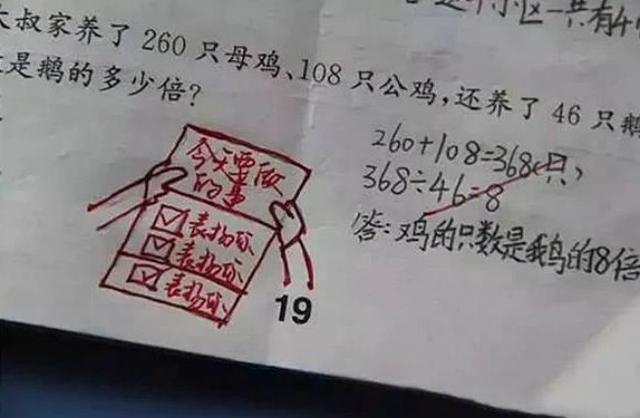 个小区一共有4
大叔家养了 260 只母鸡、108 只公鸡，还养了 46 只鹅
是鹅的多少倍？
260+108=368(只)
368÷46=8
答：鸡的只数是鹅的8倍
今天要做
的事
表扬你
表扬你
表扬你
19